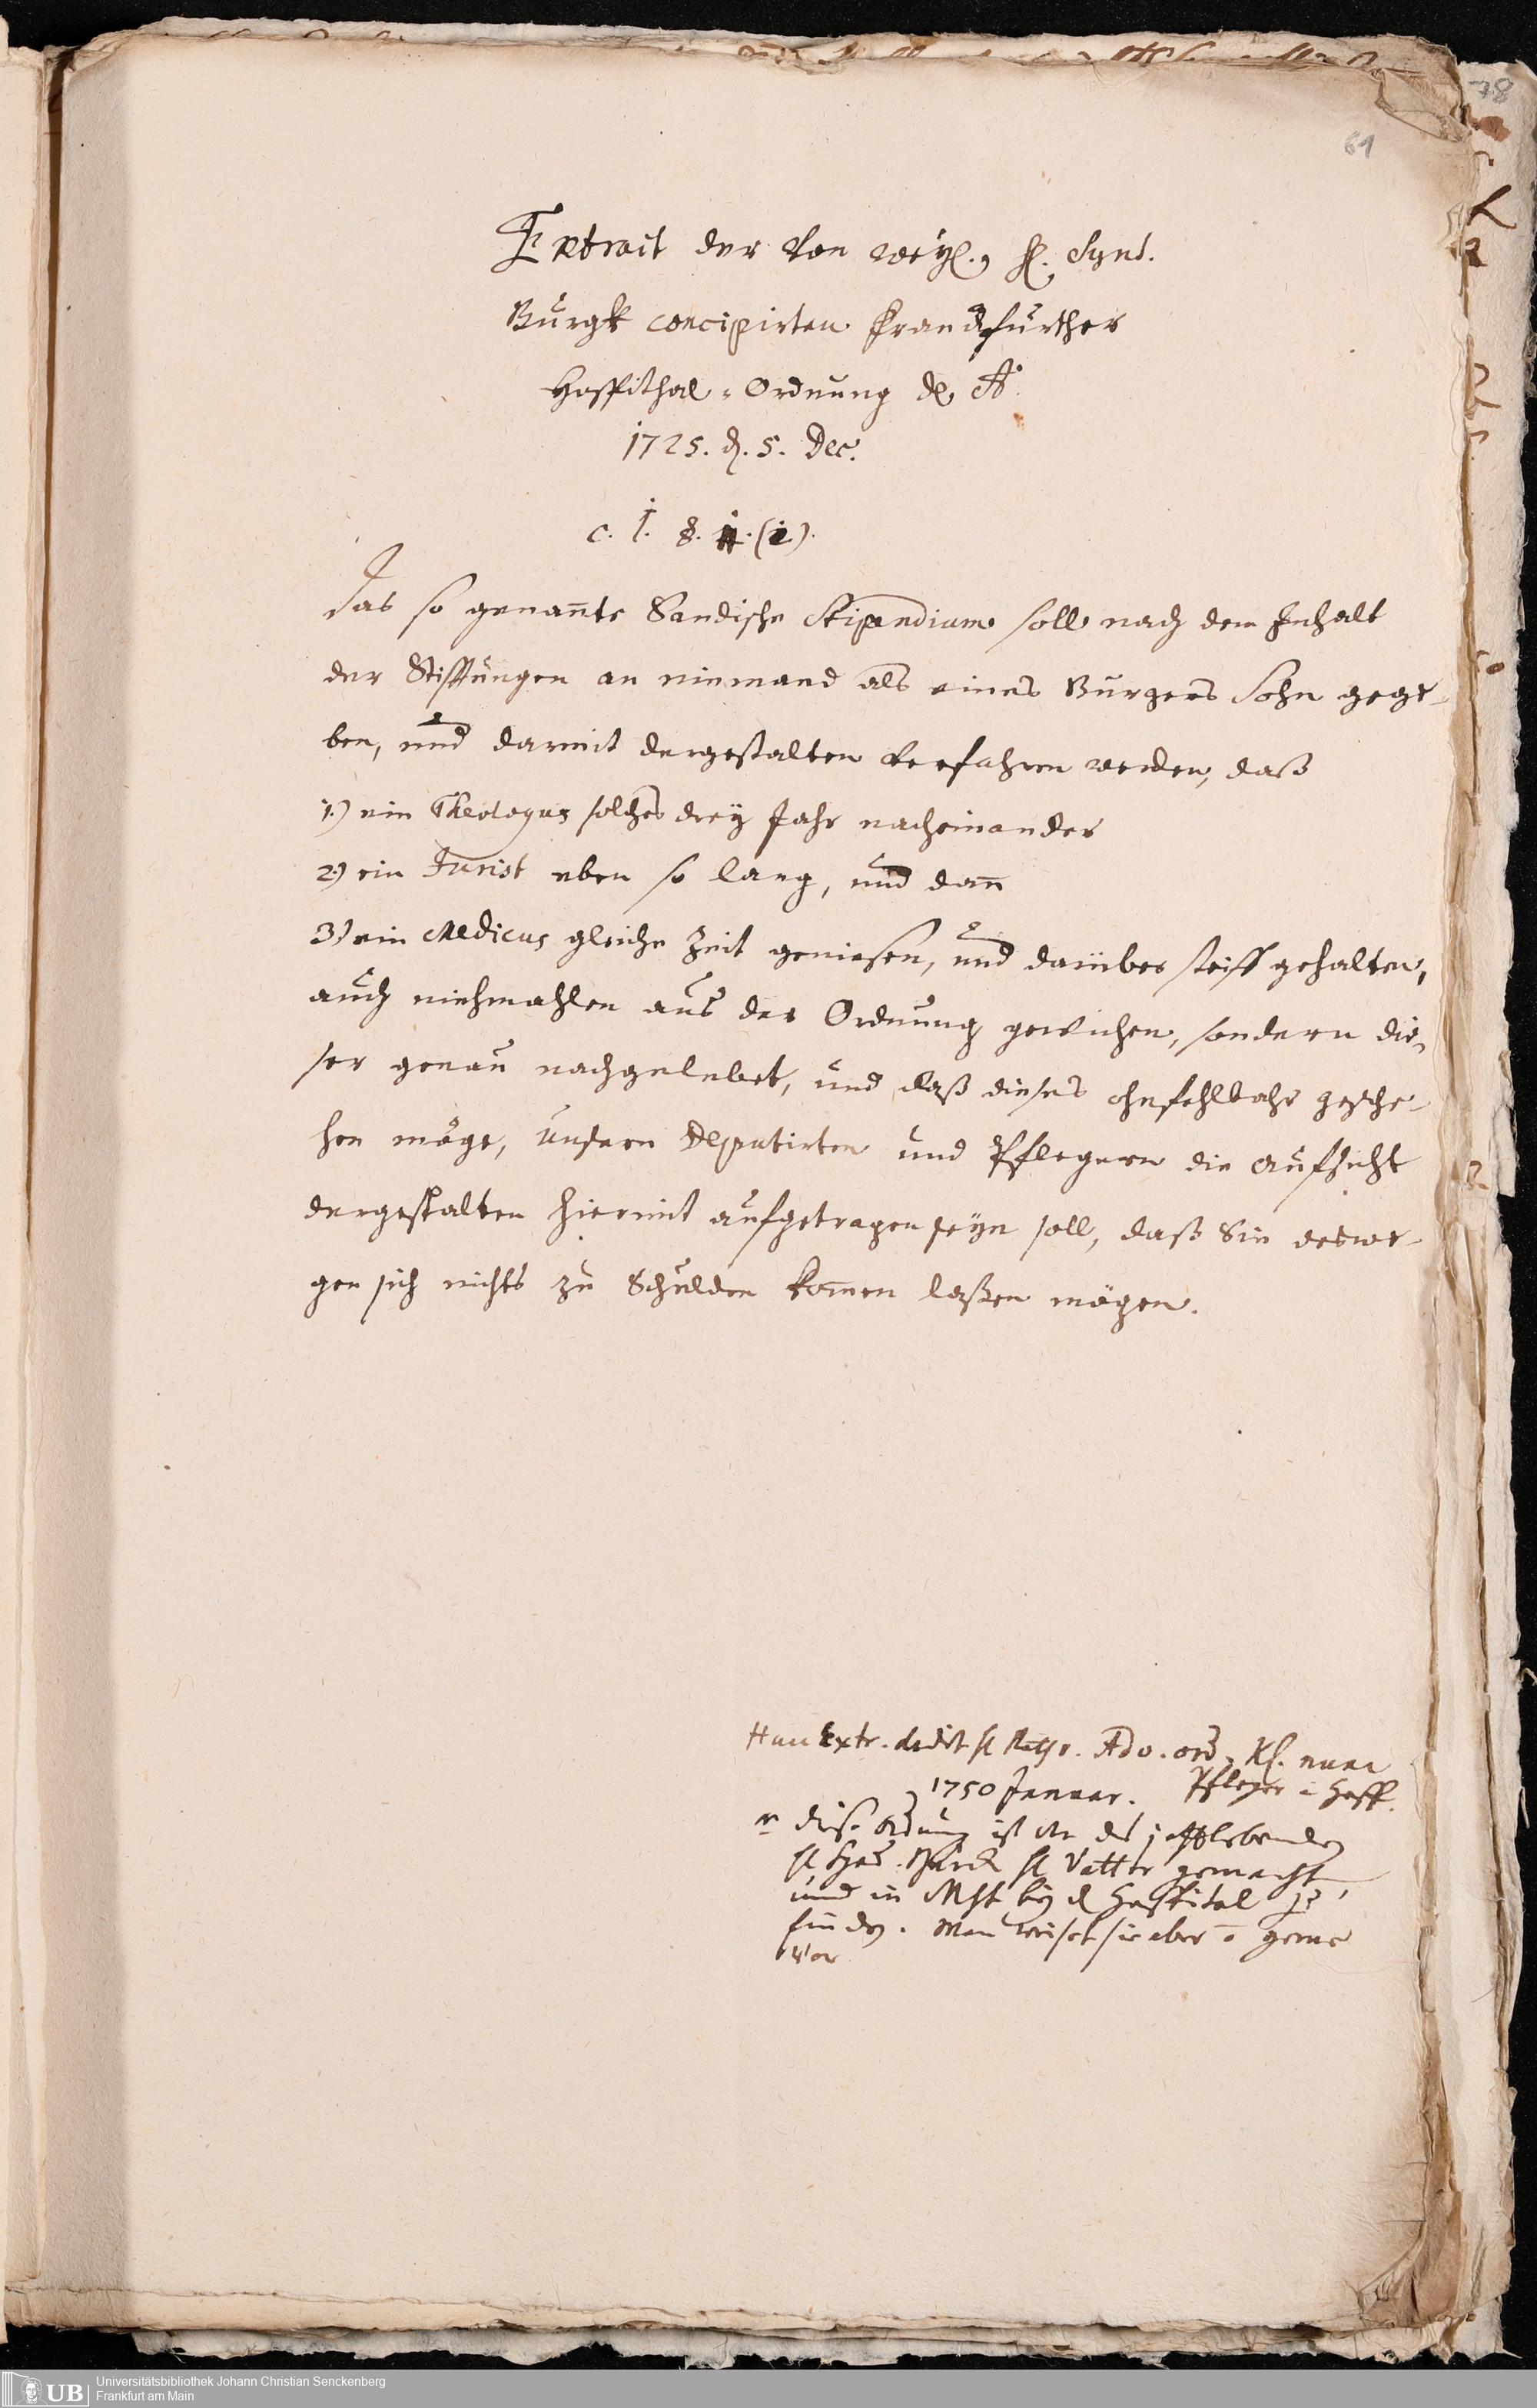 78
61
Extrait der von weyl. H. Synd.
Burgk concipirten Franckfurther
Hospithal-Ordnung de Ao.
1725. d. 5. Dec.
c. I. §. (2).
Das so genañte Sandische Stipendium soll nach dem Inhalt
der Stifftungen an niemand als eines Burgers Sohn gege-
ben, und darmit dergestalten verfahren werden, daß
1.) ein Theologus solches drey Jahr nacheinander
2.) ein Jurist eben so lang, und dañ
3.) ein Medicus gleiche Zeit geniesen, und darüber steiff gehalten,
auch niehmahlen aus der Ordnung gewichen, sondern die-
ser genau nachgelebet, und daß dieses ohnfehlbahr gesche-
hen möge, Unsern Deputirten und Pflegern die Aufsicht
dergestalten hiermit aufgetragen seyn soll, daß Sie deswe-
gen sich nichts zu Schulden kom̃en laßen mögen.
Hunc Extr. dedit H. Adv. ord. nunc
1750 Januar. Pfleger i Hosp.
diese Ordnung ist von des jetztlebenden
H. Synd. Burck H. Vatter gemacht,
und in Msst bey d Hospital zu
finden. Man weiset sie aber gerne
vor
Universitätsbibliothek Johann Christian Senckenberg
Frankfurt am Main
UB